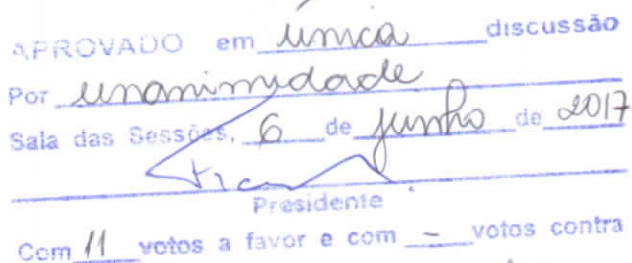 APROVADO em única discussão
Por unanimidade
Sala das Sessões, 6 de junho de 2017
Presidente
Com 11 votos a favor e com - votos contra